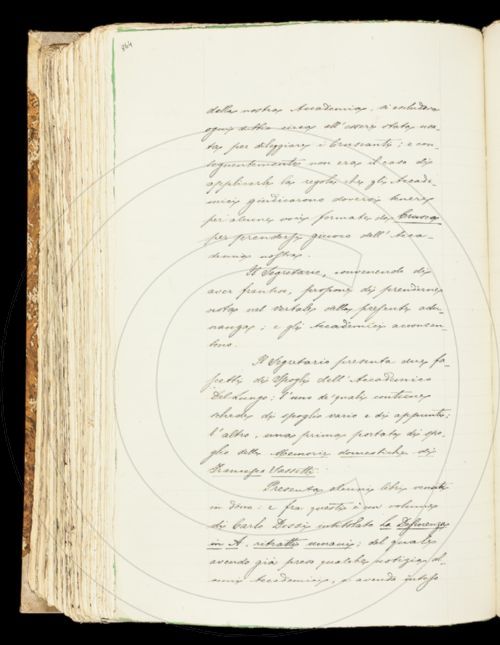 864
della nostra Accademia, si escludeva
ogni dubbio circa all'essere stata no-
tata per dileggiare i Cruscanti; e con-
seguentemente non era il caso di
applicarle la regola che gli Accade-
mici giudicarono doversi tenere
per alcune voci formate da Crusca
per prendersi giuoco dell'Acca-
demia nostra.
Il Segretario, convenendo di
aver franteso, propone di prenderne
nota nel verbale della presente adu-
nanza; e gli Accademici acconsen-
tono.
Il Segretario presenta due fa-
scetti di spogli dell'Accademico
Del Lungo: l'uno de' quali contiene
schede di spoglio vario e di appunti;
l'altro, una prima portata di spo-
glio delle Memorie domestiche di
Francesco Sassetti.
Presenta alcuni libri venuti
in dono: e fra questi è un volume
di Carlo Dossi intitolato La Desinenza
in A, ritratti umani; del quale
avendo già preso qualche notizia al-
cuni Accademici, e avendo inteso